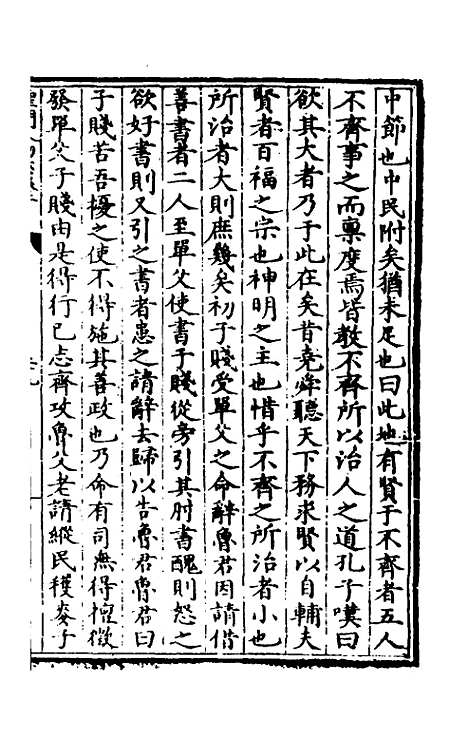 中節也中民附矣猶未足也曰此地有賢于不齊者五人
不齊事之而稟度焉皆敎不齊所以治人之道孔子嘆曰
欲其大者乃于此在矣昔堯舜聽天下務求賢以自輔夫
賢者百福之宗也神明之主也惜乎不齊之所治者小也
所治者大則庶幾矣初子賤受單父之命辭魯君因請借
善書者二人至單父使書子賤從旁引其肘書醜則怒之
欲好書則又引之書者患之請辭去歸以告魯君魯君曰
子賤苦吾擾之使不得施其善政也乃命有司無得擅徵
發單父子賤由是得行已志齊攻魯父老請縱民穫麥子